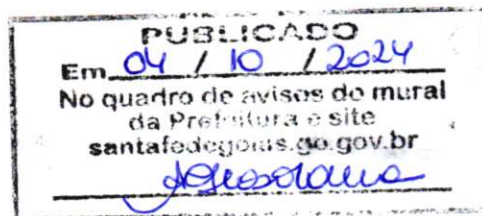 PUBLICADO
Em 04 / 10 / 2024
No quadro de avisos do mural
da Prefeitura e site
santafedegoias.go.gov.br